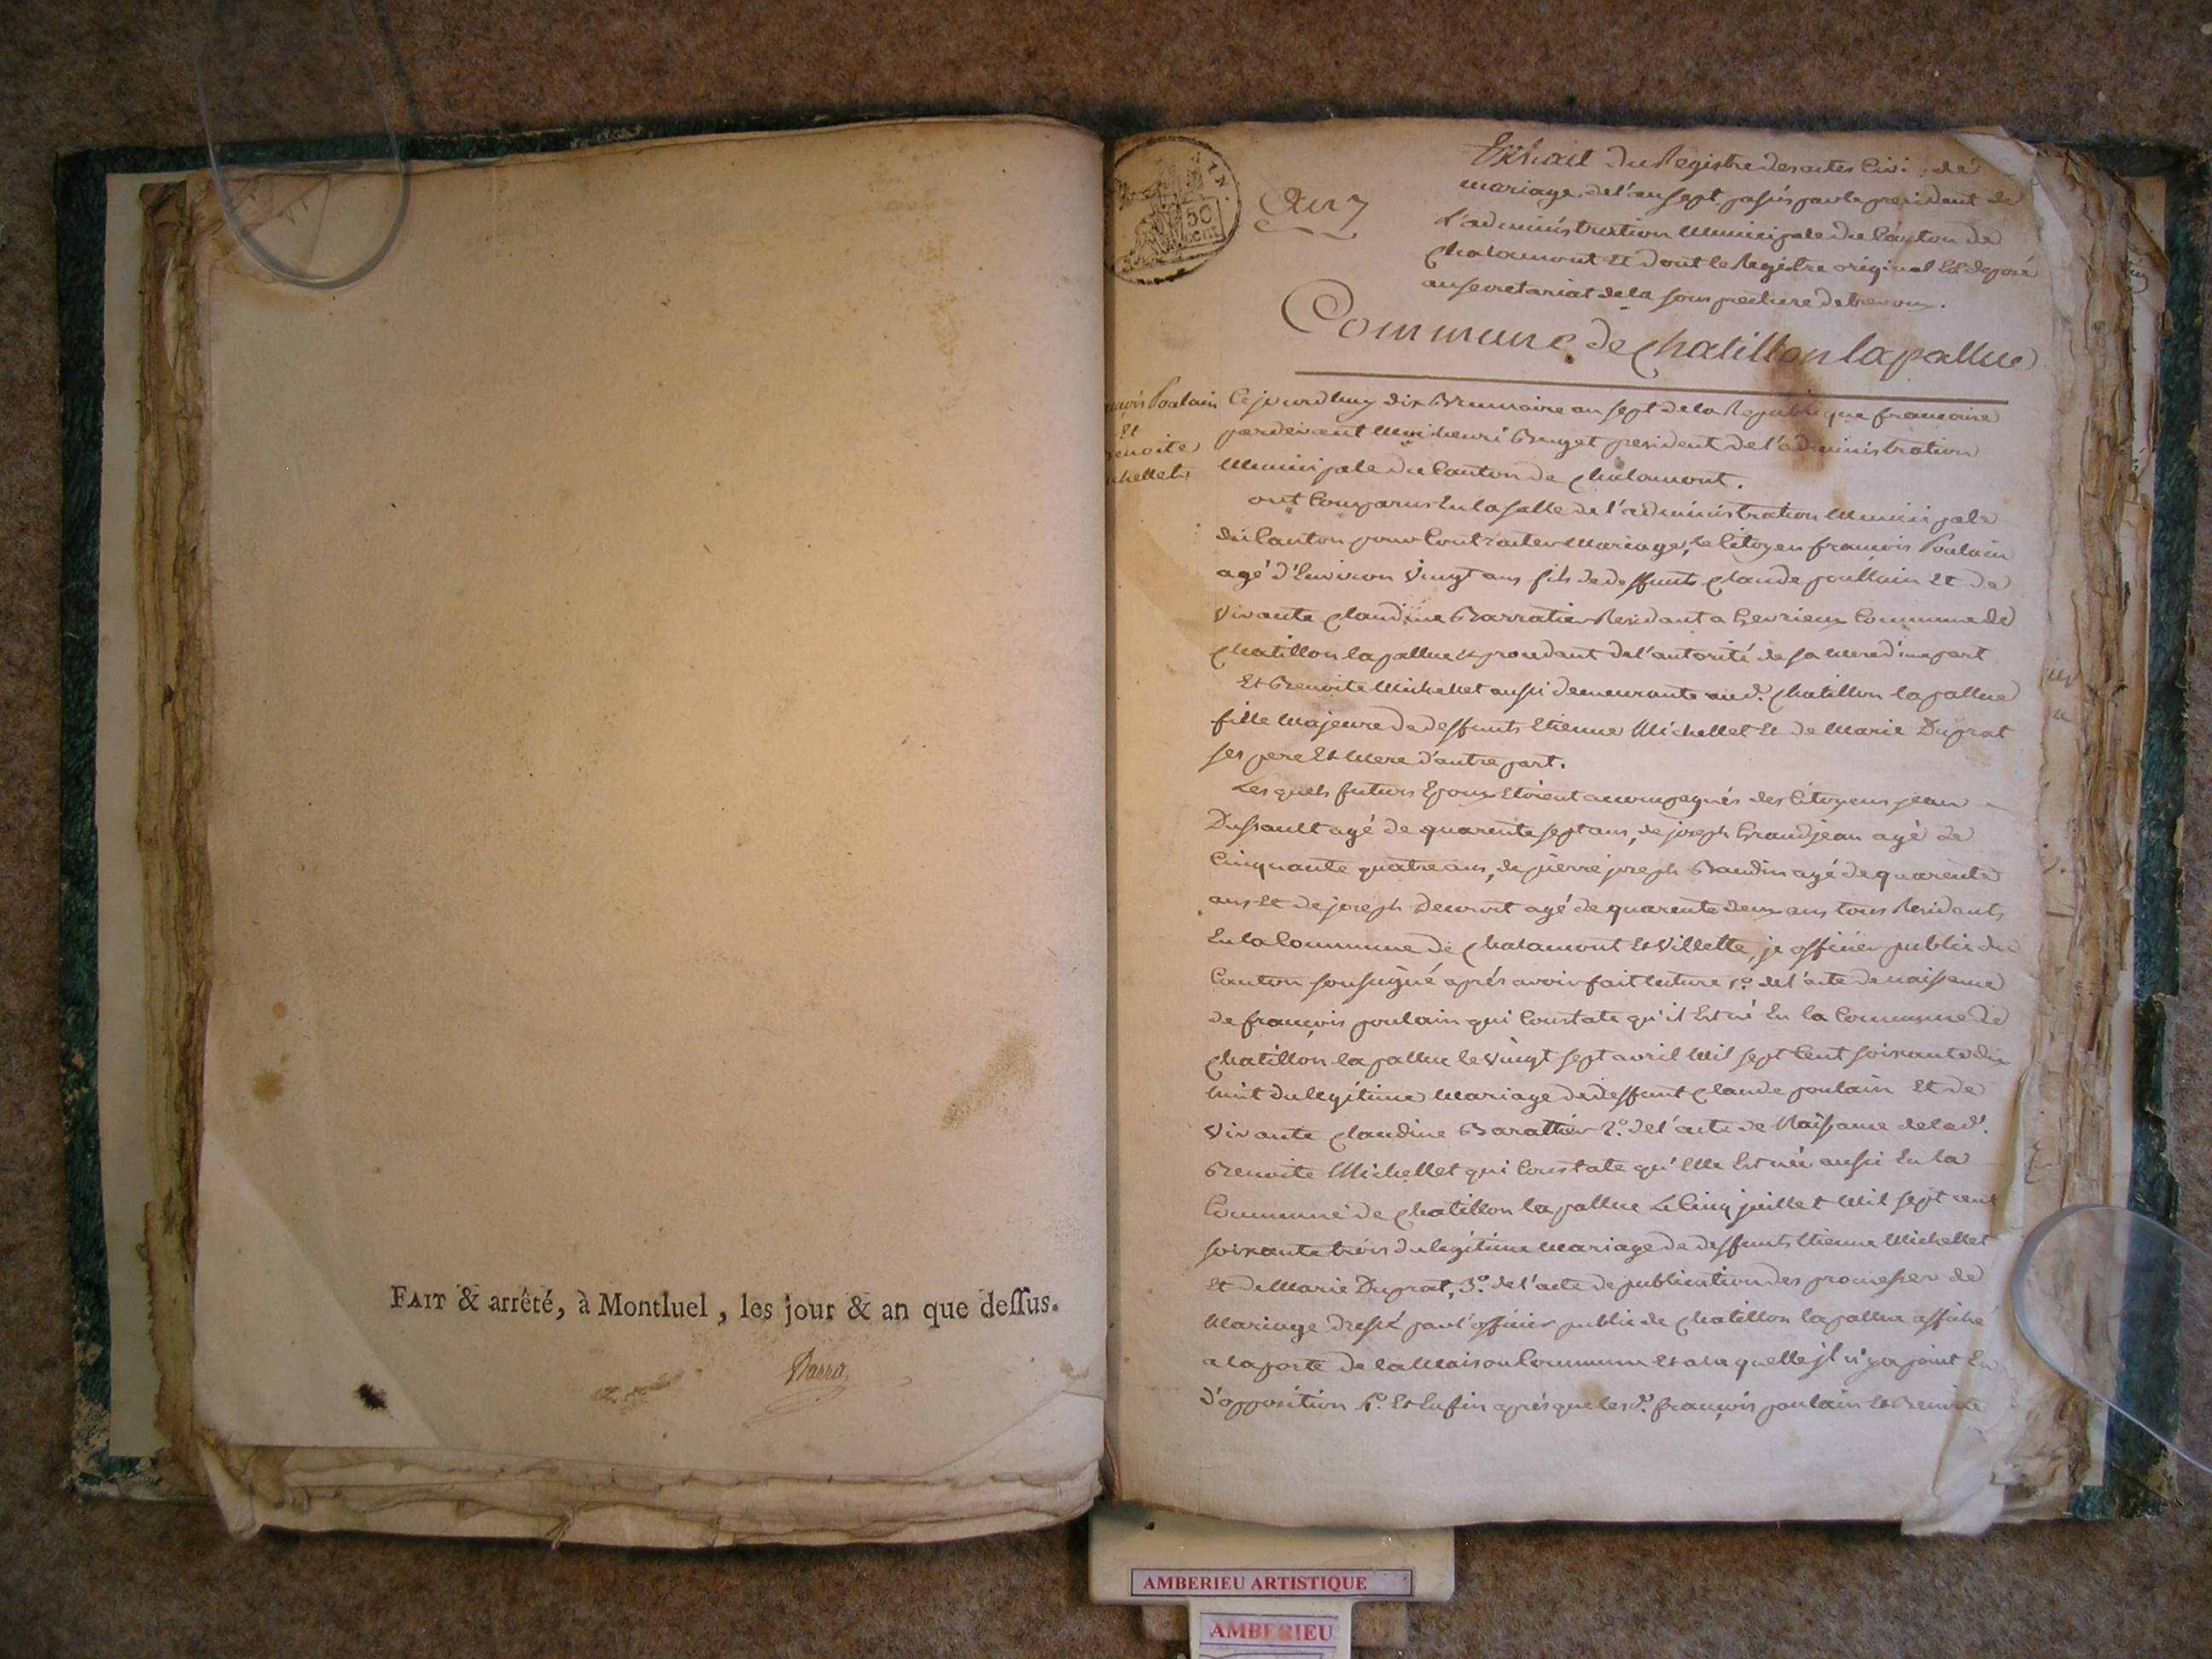 FAIT & arrêté, à Montluel, les jour & an que dessus.
50
cent
An 7
Extrait du Registre des actes Civi: de
mariage de l'an sept passés par le president de
l'administration Municipale du Canton de
Chalamont et dont le Registre original est deposé
au secretariat de la sous prefecture de trevoux.
Commune de chatillon la pallue
Poulain
Et
enoite
chellet
Ce jourdhuy dix Brumaire an sept de la Republique francoise
pardevant moi henri Buget president de l'administration
Municipale du Canton de Chalamont.
ont Comparus En la salle de l'administration Municipale
du Canton pour Contracter Mariage, le Citoyen francois Poulain
agé d'Environ Vingt ans fils de deffunts Claude poullain et de
Vivante Claudine Barratier Residant a Gevrieux Commune de
Chatillon la pallue procedant de l'autorité de sa Mere d'une part
Et Benoite Michellet aussi demeurante aud. Chatillon la pallue
fille Majeure de deffunts Etienne Michellet Et de Marie Duprat
ses pere Et Mere d'autre part.
Les quels futurs Epoux Etoient accompagnés des Citoyens jean
Dussault agé de quarente sept ans, de joseph Grandjean agé de
Cinquante quatre ans, de pierre joseph Baudin agé de quarente
ans et de joseph agé de quarente deux ans tous Residants
En la Commune de Chalamont Et Villette, je officier public du
Canton soussigné aprés avoir fait lecture 1º. de l'acte de naissance
de françois poulain qui Constate qu'il Est né En la Commune de
Chatillon la pallue le vingt sept avril Mil sept Cent soixante dix
huit du legitime Mariage de deffunt Claude poulain Et de
Vivante Claudine Barattier 2º. de l'acte de Naissance de lad.
Benoite Michellet qui Constate qu'Elle Est née aussi En la
Commune de Chatillon la pallue Le Cinq juillet Mil sept cent
soixante trois du legitime Mariage de deffunts Etienne Michellet
Et de Marie Duprat, 3º. de l'acte de publication des promesses de
Mariage dressé par l'officier public de Chatillon la pallue affiché
a la porte de la Maison Commune Et a la quelle jl n'ya point Eu
d'opposition Et Enfin aprés que les d. françois poulain Et Benoite
AMBERIEU ARTISTIQUE
AMBERIEU